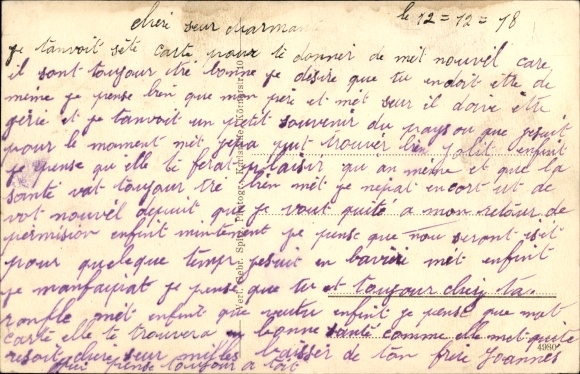 le 12=12=18
cheri seur charman
je tanvoit sete carte pour te donner de met nouvel care
il sont toujour tré bonne je désire que tu endoit etre de
meme je pense bien que mon pere et met seur il doive etre
gerie et je tanvoit un petit souvenir du pays ou que jesuit
pour le moment met jepa put trouver bien jolit enfint
je pense qu elle ti ferat plaisir qu an meme et que la
santé vat toujour tre bien met je nepat encort ut de
vot nouvel depuit que je vout quité a mon retour de
permision enfint mintenent je pense que nou seront isit
pour quelque temp jesuit en baviere met enfint
je manfoupat je pense que tu et toujour chez ta
met enfint que veutu enfint je pense que met
carte elle te trouvera en bonne santé comme elle met quite
resoit cheri seur milles baisser de ton frere Joannes
qui pense toujour a toit
Verl. Gebr. Spitz, Photogr.
4980